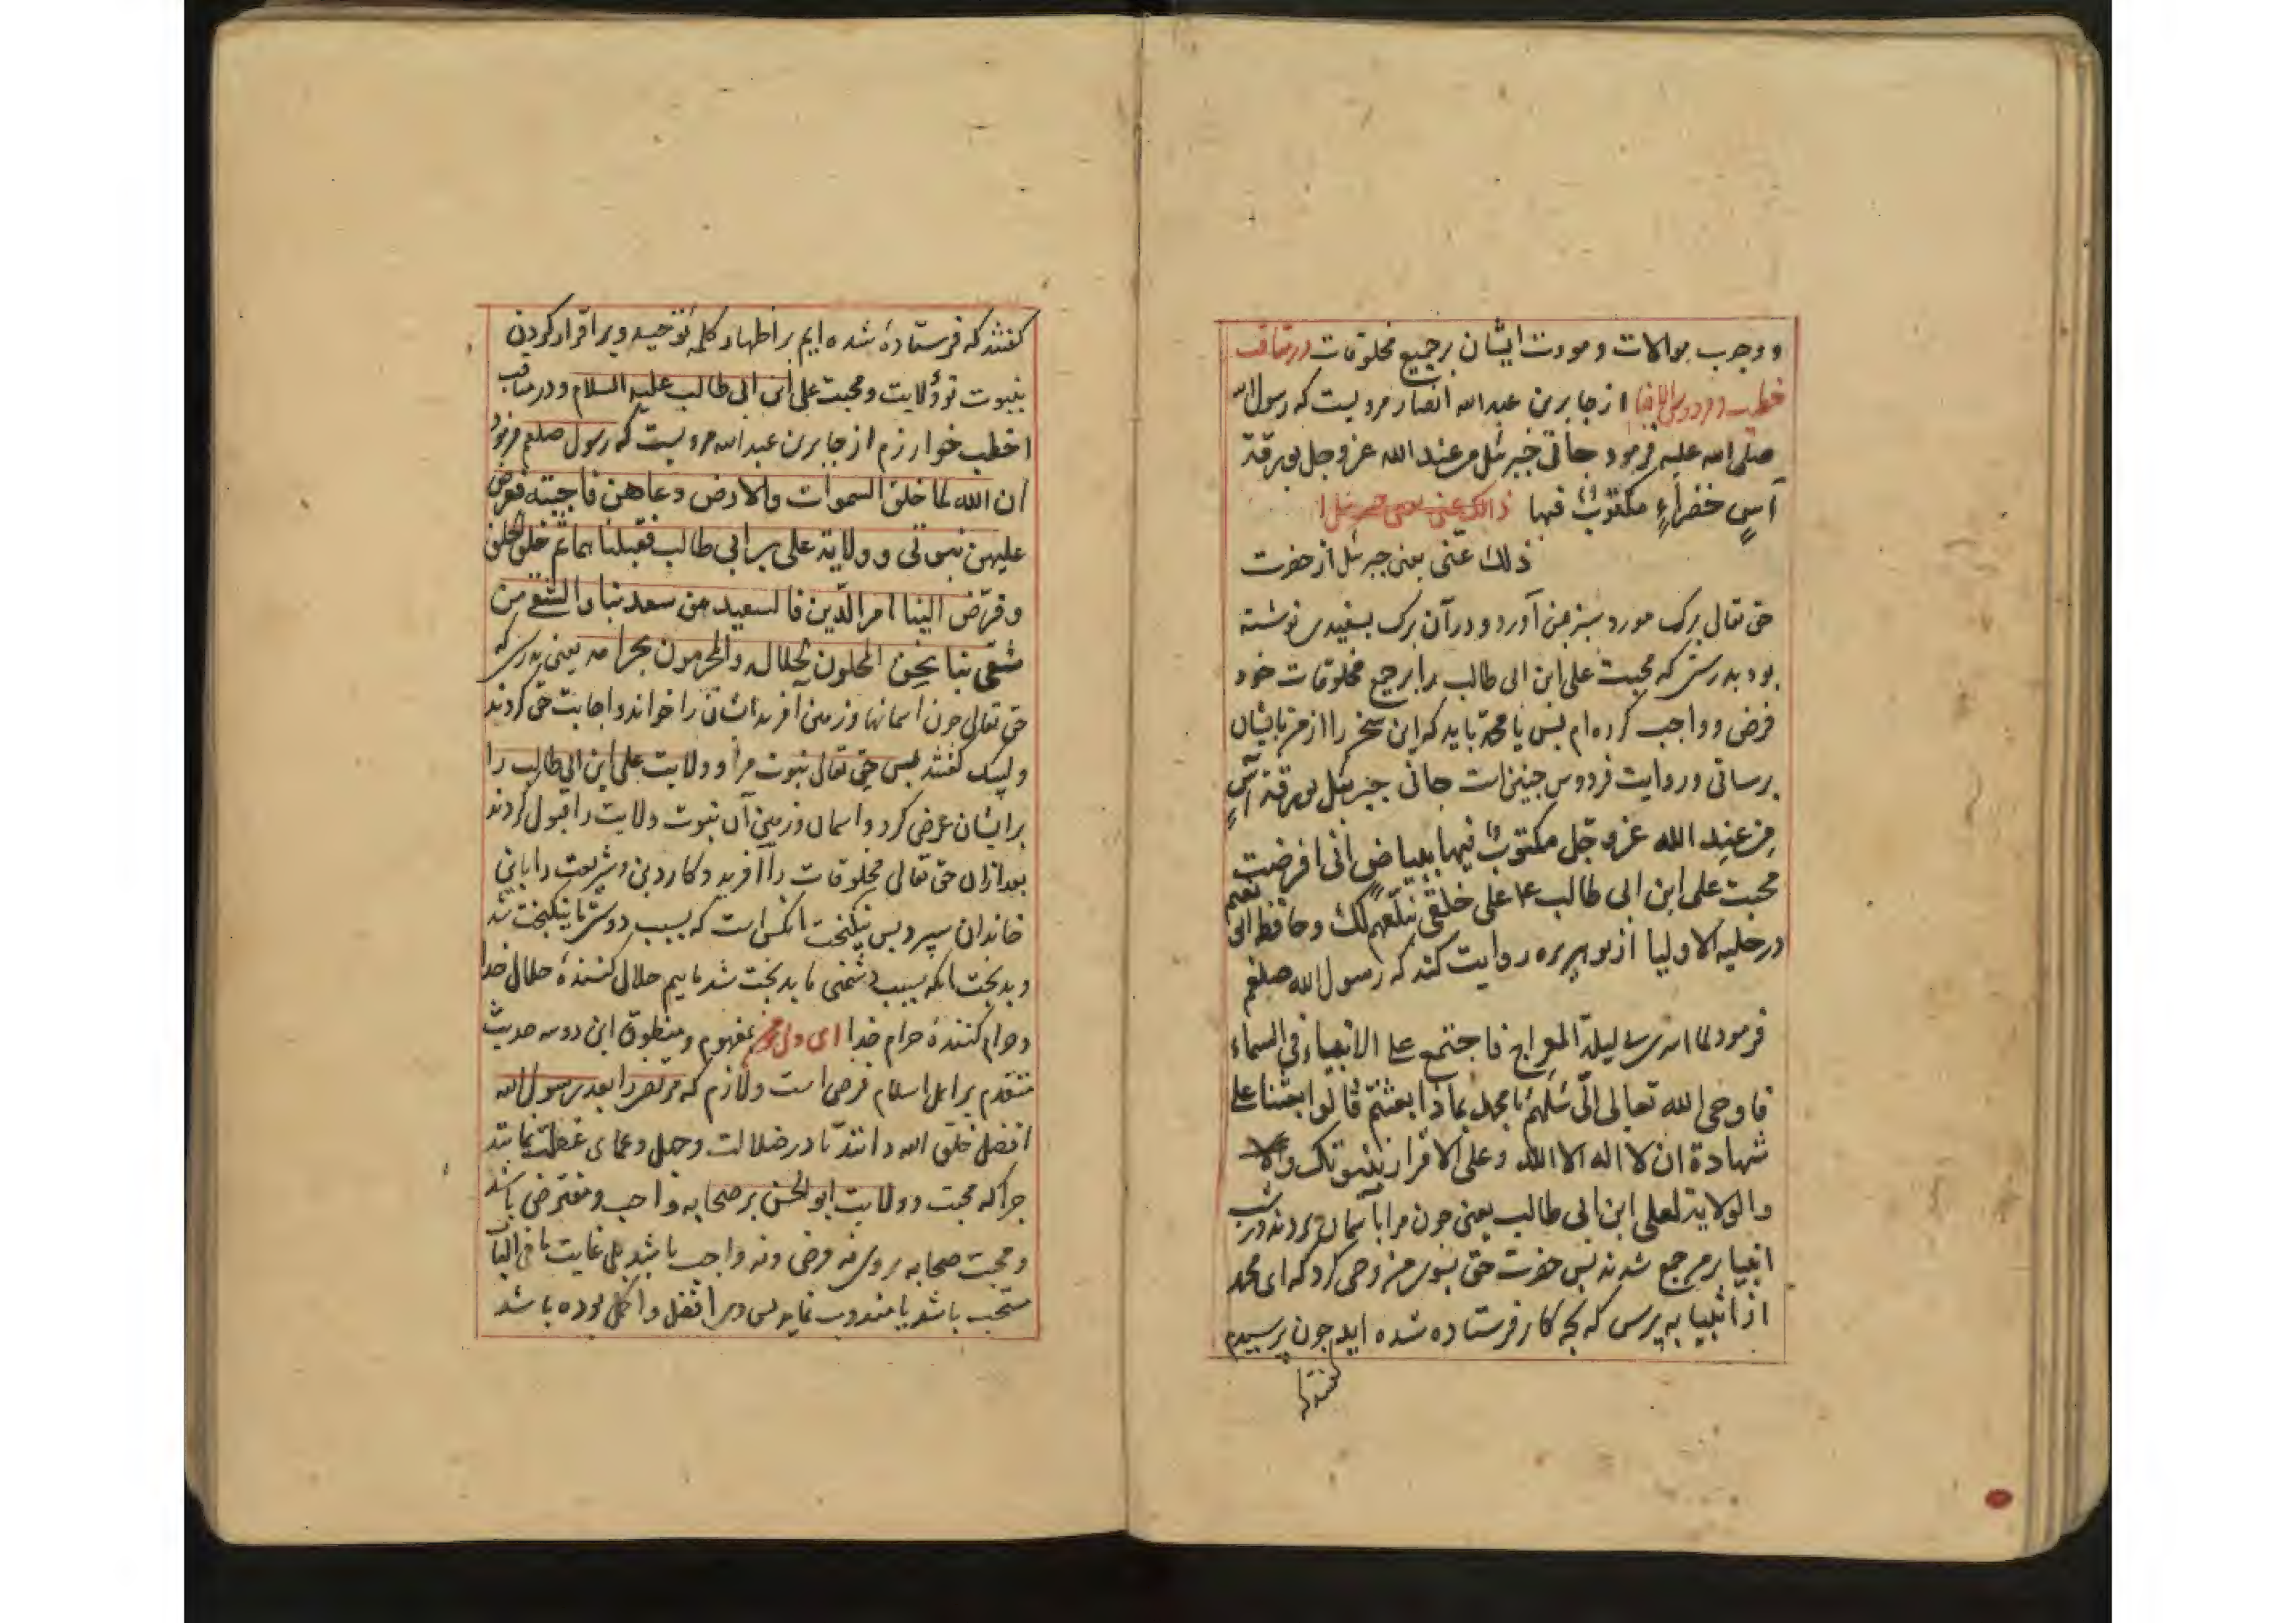 و وجوب موالات و مودت ایشان بر جمیع مخلوقات در مناقب
خطیب و فردوس الاخبار از جابر بن عبدالله انصار مرویست که رسول الله
صلی الله علیه فرمود جانی جبرئل من عند الله عزوجل بورقة
آسٍ خضراءٍ مکتوبٌ فیها ذالک عنی یعنی جبرئل ا
ذلك عنی یعنی جبرئل از حضرت
حق تعال برک مورد سبز بمن آورد و در آن برک بسفیدی نوشته
بود بدرستی که محبت علی ابن ابی طالب را بر جمیع مخلوقات خود
فرض و واجب کرده ام بس یا محمد باید که این سخن را از من بایشان
برسانی و روایت فردوس جنین است جانی جبرئل بورقة آسٍ
من عند الله عزوجل مکتوبٌ فیها ببیاضٍ انی افرضت
محبت علی ابن ابی طالب ع علی خلقی فبلّغهم ذلك و حافظ ابی نعیم
در حلیه الاولیا از بو هریره روایت کند که رسول الله صلعم
فرمود لما اسری لیلة المعراج فاجتمع علی الانبیاء فی السماء
فاوحی الله تعالی الیّ سَلهم یا محمد بماذا بعثتم قالوا بعثنا علی
شهادة ان لا اله الا الله و علی الاقرار بنبوتک
والولایة لعلی ابن ابی طالب یعنی جون مرا بآسمان بردند در شب
انبیا بر من جمع شدند بس حضرت حق بسوی من وحی کرد که ای محمد
از انبیا به پرس که بجه کار فرستاده شده اید جون پرسیدم
کفتند
کفتند که فرستادهٔ شده ایم بر اظهار کلمهٔ توحید و بر اقرار کردن
بنبوت تو و ولایت و محبت علی ابن ابی طالب علیه السلام و در مناقب
اخطب خوارزم از جابر بن عبدالله مرویست که رسول صلعم فرمود
ان الله لما خلق السموات والارض دعاهن فاجبنه فعرض
علیهن نبوتی و ولایة علی بن ابی طالب فقبلنا هما ثم خلق الخلق
و فوّض الینا امر الدّین فالسعید من سعد بنا والشقی من
شقی بنا نحن المحلون لحلاله والمحرمون بحرامه یعنی بدرستی که
حق تعالی جون اسمانها و زمین آفرید ایشان را خواند و اجابت حق کردند
و لبیک کفتند بس حق تعالی نبوت مرا و ولایت علی ابن ابی طالب را
بر ایشان عرض کرد و اسمان و زمین آن نبوت ولایت را قبول کردند
بعد ازان حق تعالی مخلوقات را آفرید و کار دین و شریعت را باین
خاندان سپرد بس نیکبخت انکس است که بسبب دوستی ما نیکبخت شد
و بدبخت انکه بسبب دشمنی ما بدبخت شد ماییم حلال کنندهٔ حلال خدا
و حرام کنندهٔ حرام خدا ای دل مفهوم و منطوق این دو سه حدیث
متقدم بر اهل اسلام فرض است و لازم که مرتضی را بعد رسول الله
افضل خلق الله دانند تا در ضلالت و جهل و عمای غفلت نمانند
جرا که محبت و ولایت ابو الحسن بر صحابه واجب و مفترض باشد
و محبت صحابه بر وی نه فرض و نه واجب باشد بل غایت ما فی الباب
مستحب باشد یا مندوب نماید بس وی افضل و اکمل بوده باشد